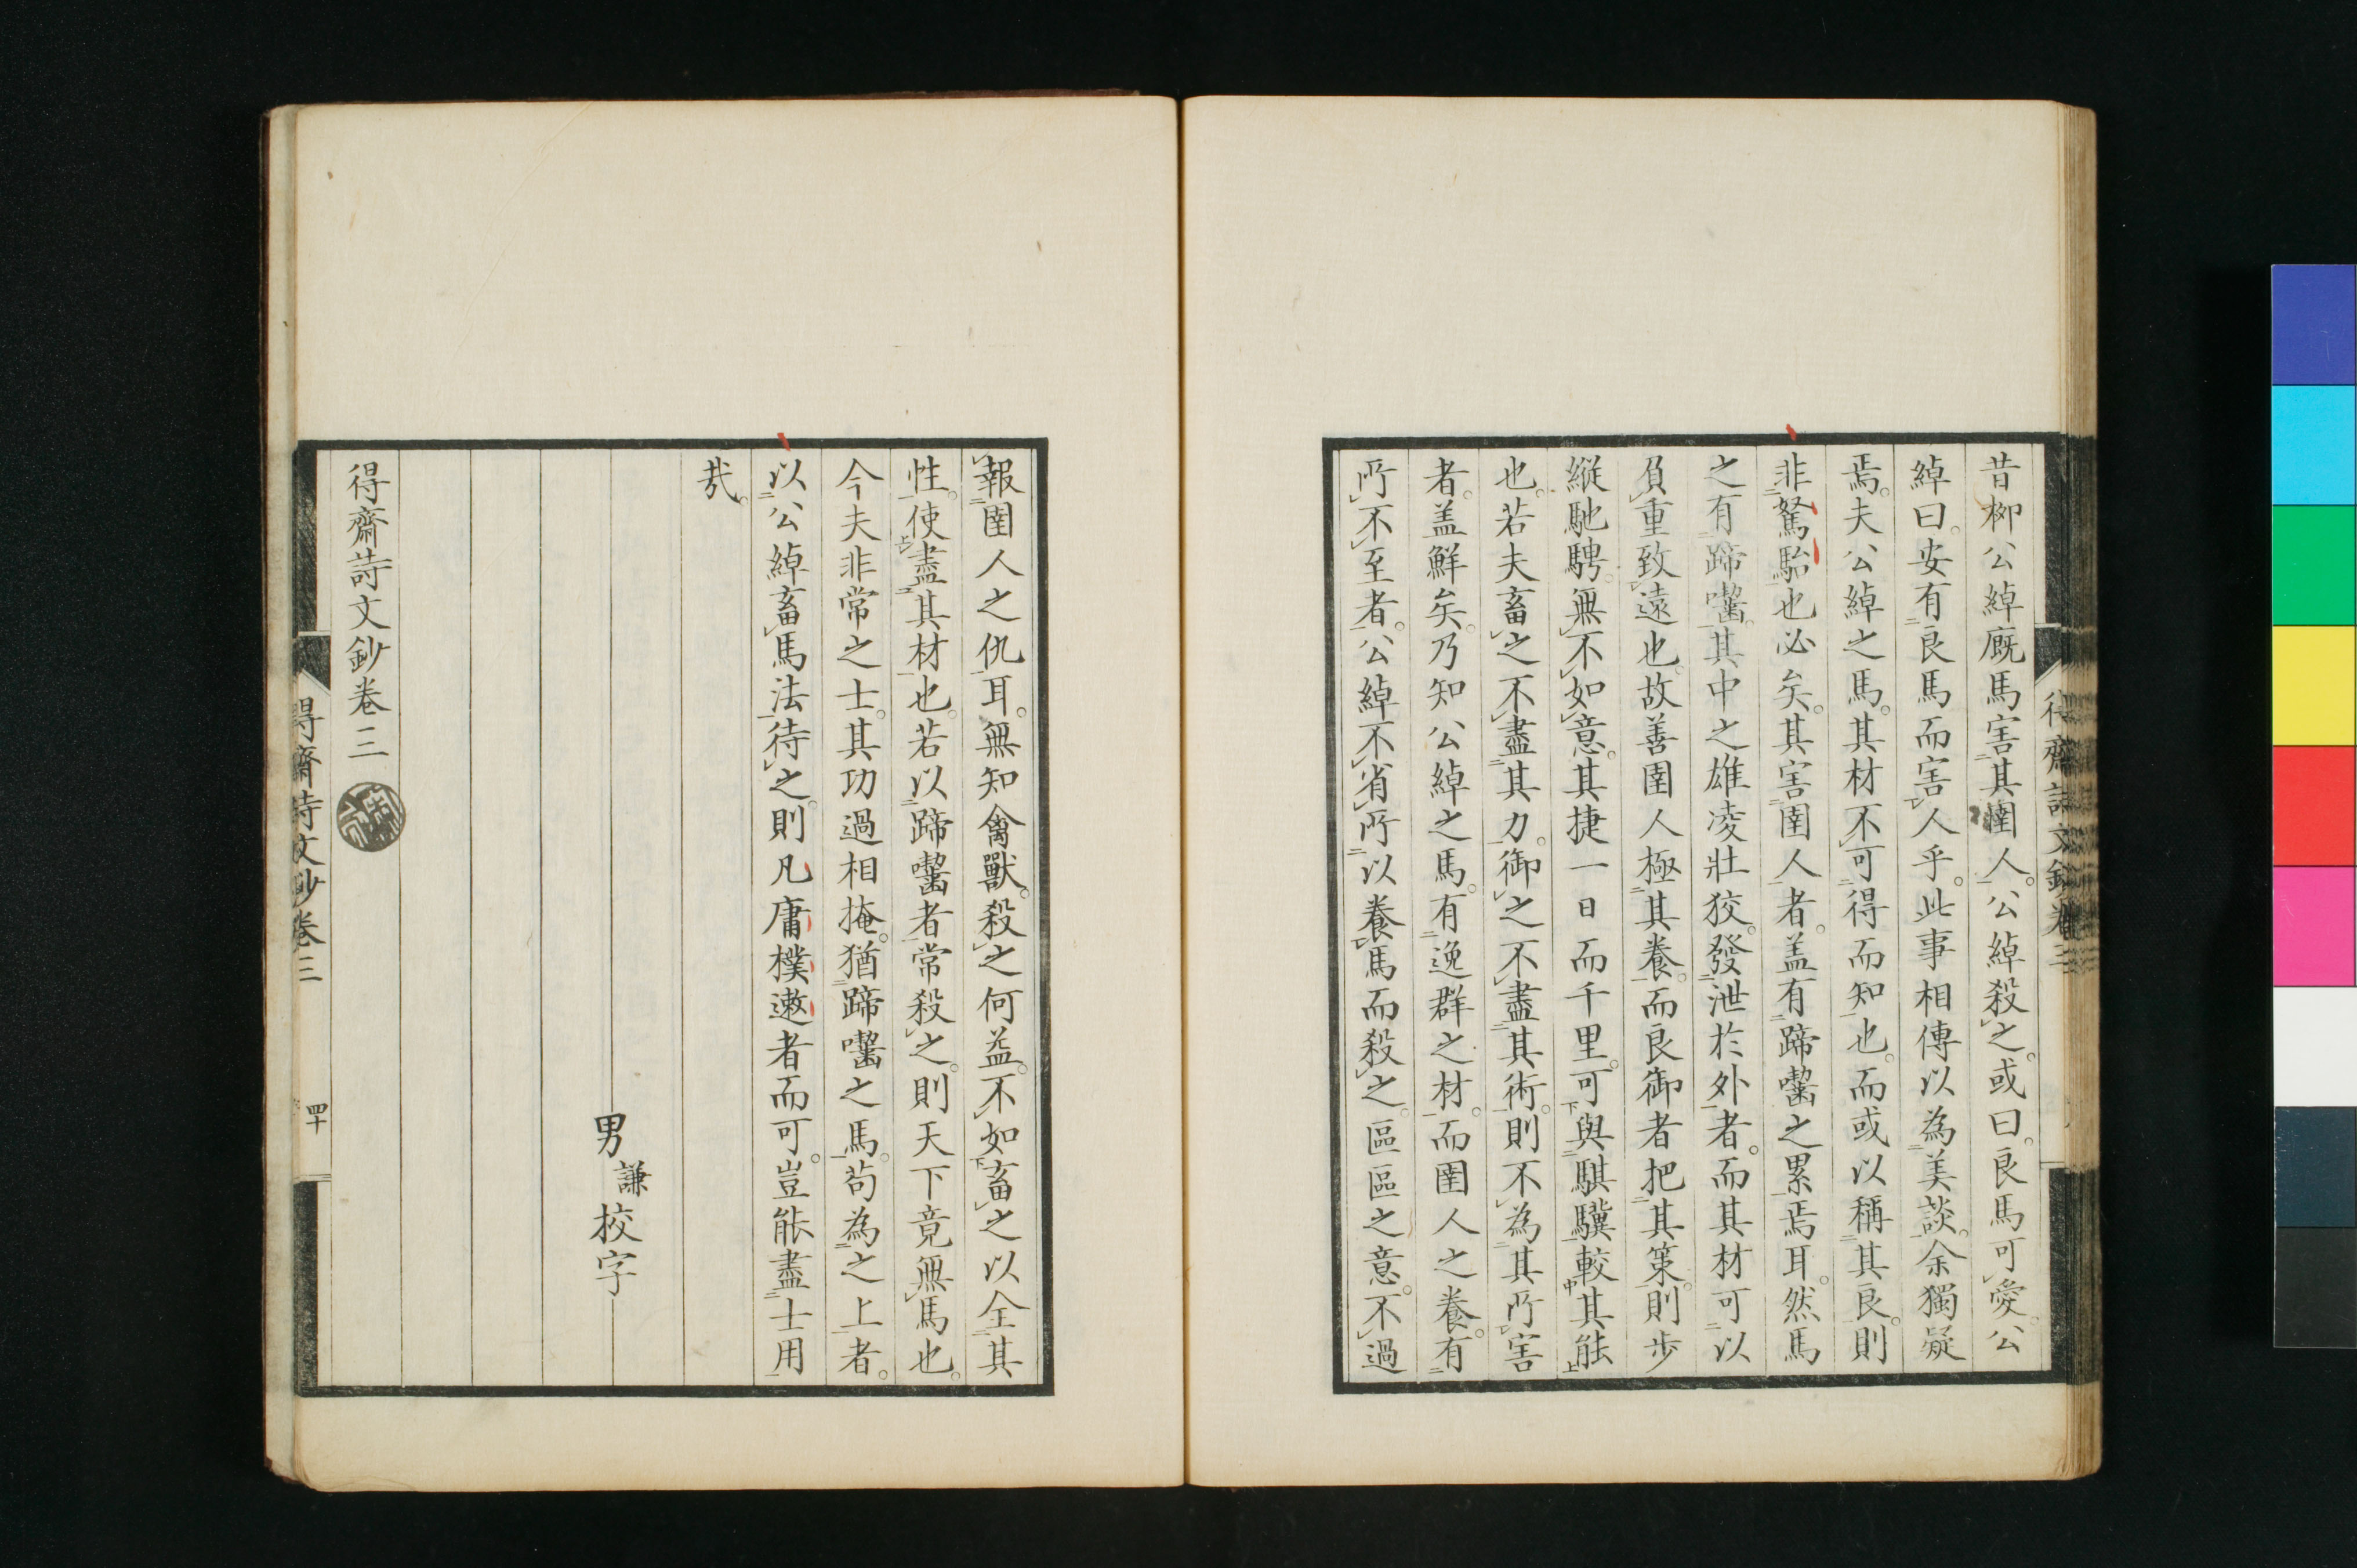 昔柳公綽厩馬害其圉人。公綽殺之。或曰。良馬可愛。公
綽曰。安有良馬而害人乎。此事相傳以為美談。余獨疑
焉。夫公綽之馬。其材不可得而知也。而或以稱其良。則
非駑駘也必矣。其害圉人者。盖有蹄囓之累焉耳。然馬
之有蹄囓。其中之雄凌壯狡。發泄於外者。而其材可以
負重致遠也。故善圉人極其養。而良御者把其策。則步
縱馳騁。無不如意。其捷一日而千里。可與騏驥較其能
也。若夫畜之不盡其力。御之不盡其術。則不為其所害
者。盖鮮矣。乃知公綽之馬。有逸群之材。而圉人之養。有
所不至者。公綽不省所以養馬而殺之。區區之意。不過
報圉人之仇耳。無知禽獸。殺之何益。不如畜之以全其
性。使盡其材也。若以蹄囓者常殺之。則天下竟無馬也。
今夫非常之士。其功過相掩。猶蹄囓之馬。苟為之上者。
以公綽畜馬法待之。則凡庸樸遫者而可。豈能盡士用
哉。
男謙校字
得齋詩文鈔卷三
得齋詩文鈔卷三
四十